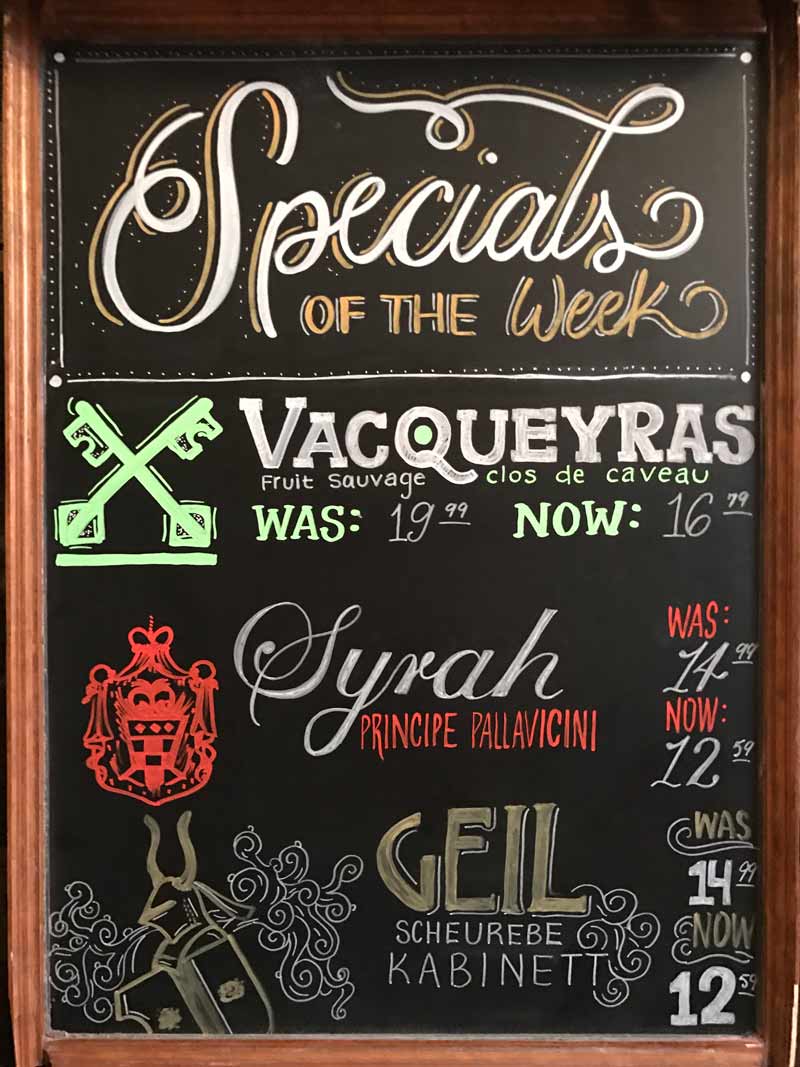 Specials
OF THE Week
VACQUEYRAS
Fruit Sauvage clos de caveau
WAS: 19 99 NOW: 16 79
Syrah
PRINCIPE PALLAVICINI
WAS:
14 99
NOW:
12 59
GEIL
SCHEUREBE
KABINETT
WAS
14 99
NOW
12 59